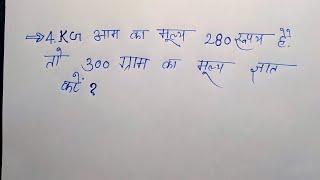 ⇒ 4. KG आम का मूल्य 280 रूपए है.
तो 300 ग्राम का मूल्य ज्ञात
करें ?